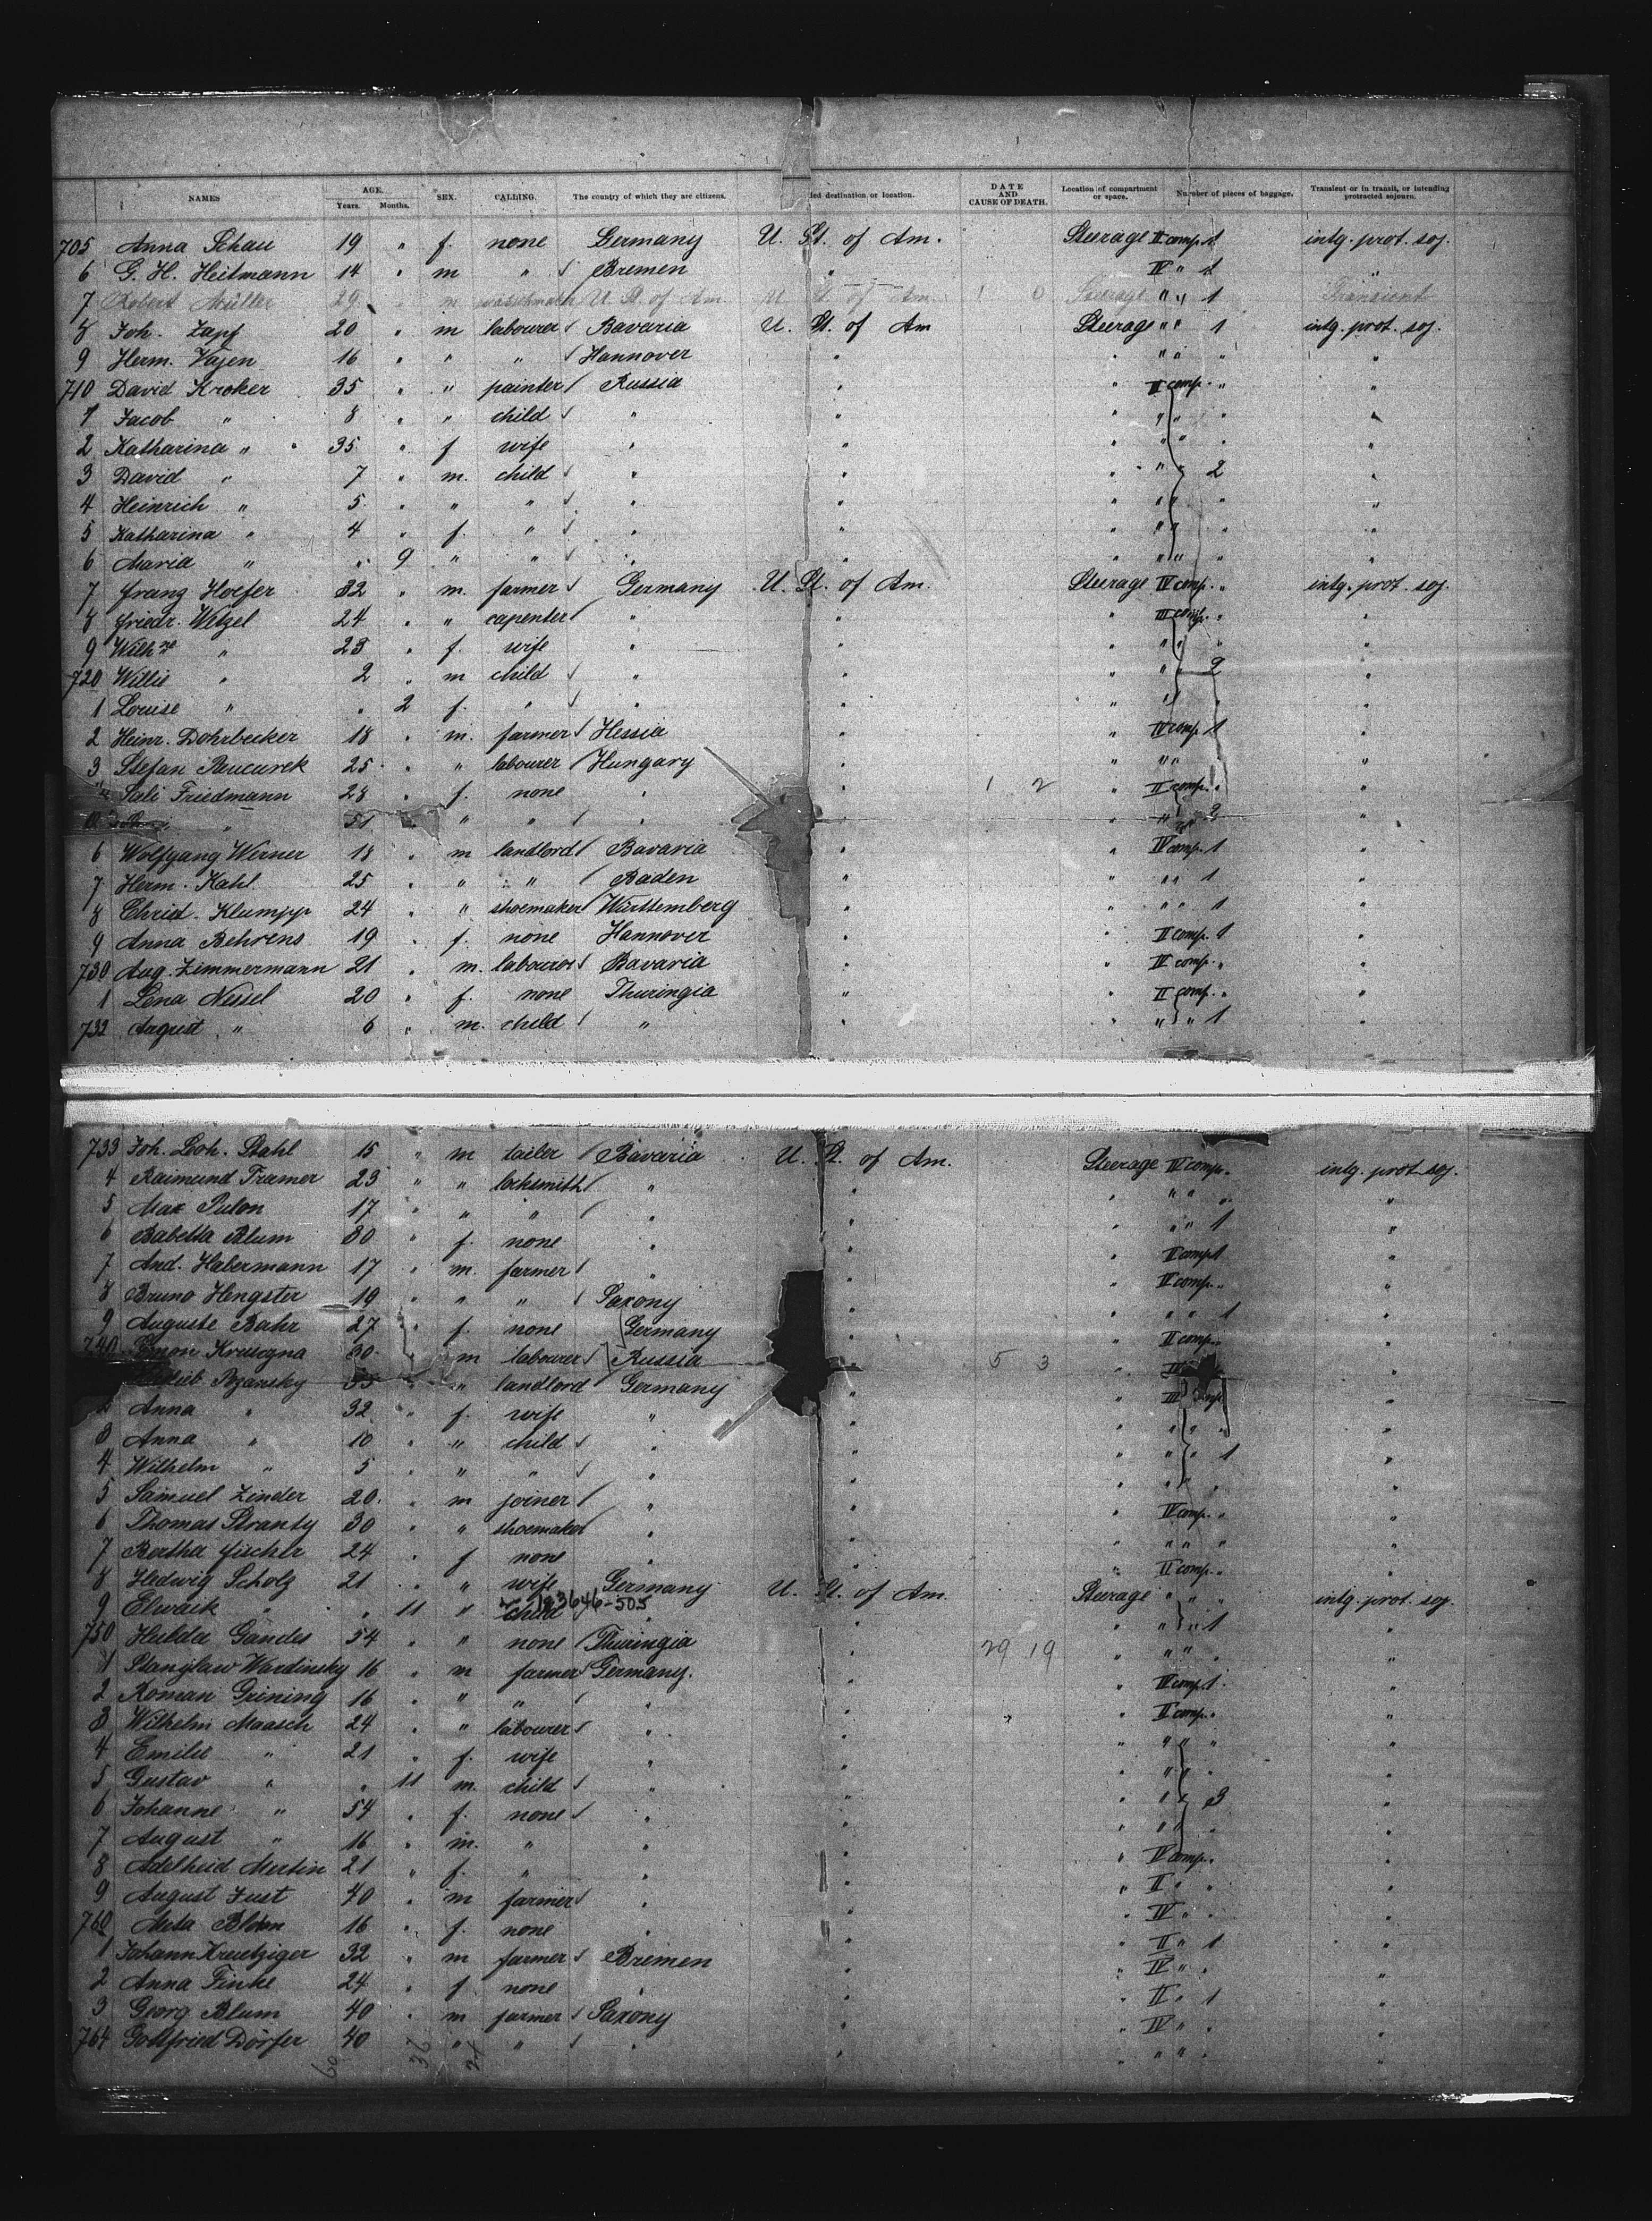 NAMES AGE. Years. Months. SEX. CALLING. The country of which they are citizens. ded destination or location. DATE AND CAUSE OF DEATH. Location of compartment or space. Number of pieces of baggage. Transient or in transit, or intending protracted sojourn.
705 Anna Schau 19 " f. none Germany U. St. of Am. Steerage II comp. 1 intg. prot. soj.
6 G. H. Heitmann 14 " m " Bremen " IV " 1 "
7 Robert Müller 29 " m U. St. of Am U. St. of Am 1 0 Steerage " " 1 Transient
8 Joh. Zapf 20 " m labourer Bavaria U. St. of Am Steerage " " 1 intg. prot. soj.
9 Herm. Vajen 16 " " " Hannover " " " " " "
710 David Kroker 35 " " painter Russia " " II comp. " "
1 Jacob " 8 " " child " " " " " " "
2 Katharina " 35 " f wife " " " " " "
3 David " 7 " m. child " " " " " 2 "
4 Heinrich " 5 " " " " " " " " " "
5 Katharina " 4 " f. " " " " " " "
6 Maria " " 9 " " " " " " " " "
7 Franz Hoefer 32 " m. farmer Germany U. St. of Am. Steerage IV comp. " intg. prot. soj.
8 Friedr. Wetzel 24 " " capenter " " " III comp. " "
9 Wilhne " 23 " f. wife " " " " " " "
720 Willie " 2 " m child " " " " " 2 "
1 Louise " " 2 f. " " " " " " "
2 Heinr. Dohrbecker 18 " m. farmer Hessia " " IV comp. 1 "
3 Stefan Rucurek 25 " " labourer Hungary " " " " "
Sali Friedmann 28 " f. none " " 1 2 " II comp. " "
" 51 " " " " " " " 2 "
6 Wolfgang Werner 18 " m landlord Bavaria " " IV comp. 1 "
7 Herm. Kahl 25 " " " Baden " " " " 1 "
8 Christ. Klumpp 24 " " shoemaker Württemberg " " " " 1 "
9 Anna Behrens 19 " f. none Hannover " " II comp. 1 "
730 Aug. Zimmermann 21 " m. labourer Bavaria " " IV comp. " "
1 Lena Nessel 20 " f. none Thuringia " " II comp. " "
732 August " 6 " m. child " " " " " 1 "
733 Joh. Loh. Stahl 15 " m tailer Bavaria U. St. of Am. Steerage IV comp. " intg. prot. soj.
4 Raimund Framer 23 " " locksmith " " " " " " "
5 Max Pulon 17 " " " " " " " " 1 "
6 Babetta Blum 30 " f. none " " " II comp. 1 "
7 And. Habermann 17 " m. farmer " " " IV comp. " "
8 Bruno Hengster 19 " " " Saxony " " " " 1 "
9 Auguste Bahr 27 " f. none Germany " " II comp. " "
740 Simon Krusczna 30 " m labourer Russia " 5 3 " "
Pozansky 35 " " landlord Germany " " III comp "
2 Anna " 32 " f. wife " " " " " " "
3 Anna " 10 " " child " " " " " 1 "
4 Wilhelm " 5 " " " " " " " " " "
5 Samuel Zinder 20 " m joiner " " " IV comp. " "
6 Thomas Stranty 30 " " shoemaker " " " " " " "
7 Bertha Fischer 24 " f none " " " II comp. " "
8 Hedwig Scholz 21 " " wife Germany U. St. of Am. Steerage " " " intg. prot. soj.
9 " " 11 " child " " " " " 1 "
183646-505
750 Hulda Gandes 54 " " none Thuringia " 29 19 " " " " "
1 Stanislaw Wardinsky 16 " m farmer Germany. " " IV comp. 1 "
2 Roman Grining 16 " " " " " " II comp. " "
3 Wilhelm Maasch 24 " " labourer " " " " " " "
4 Emilie " 21 " f. wife " " " " " " "
5 Gustav " " 11 m. child " " " " " 3 "
6 Johanne " 54 " f. none " " " " " " "
7 August " 16 " m. " " " " IV comp. " "
8 Adelheid Mertin 21 " f. " " " " II " " "
9 August Just 40 " m farmer " " " IV " " "
760 Meta Blohm 16 " f. none " " " II " 1 "
1 Johann Kreutziger 32 " m farmer Bremen " " IV " " "
2 Anna Finke 24 " f none " " " II " 1 "
3 Georg Blum 40 " m farmer Saxony " " IV " " "
764 Gottfried Dörfer 40 " " " " " " " " " "
60 36 24